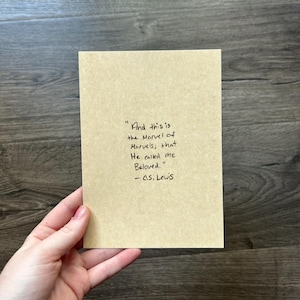 "And this is
the Marvel of
Marvels, that
He called me
Beloved."
- C.S. Lewis